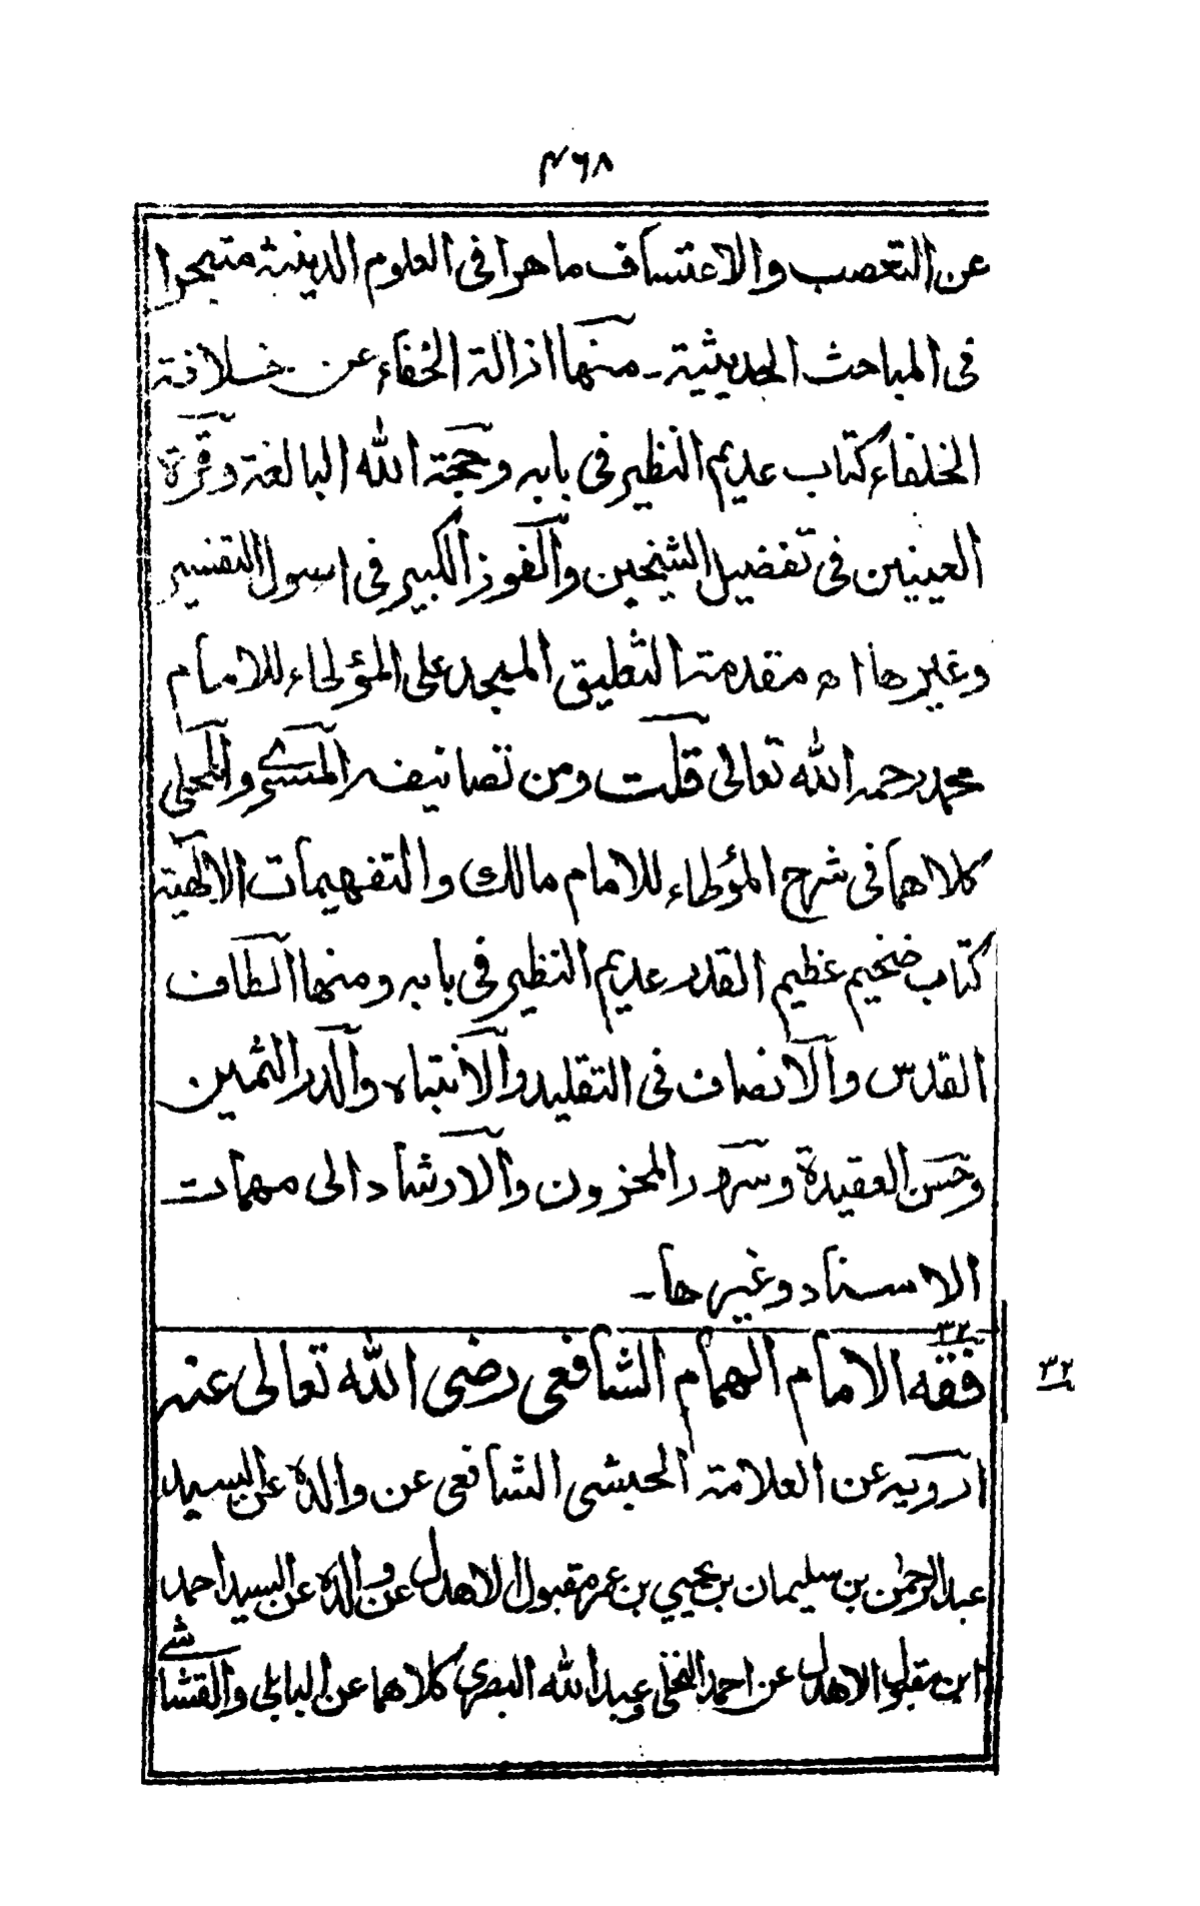 ۴۶۸
عن التعصب والاعتساف ماهرا فى العلوم الدينية متبحرا
فى المباحث الحديثية ـ منها ازالة الخفاء عن خلافة
الخلفاء كتاب عديم النظير فى بابه وحجة الله البالغة وقرة
العينين فى تفضيل الشيخين والفوز الكبير فى اسول التفسير
وغيرها اه مقدمة التعليق الممجد على المؤطاء للامام
محمد رحمه الله تعالى قلت ومن تصانيفه المسوى والمحلى
كلاهما فى شرح المؤطاء للامام مالك والتفهيمات الالهية
كتاب ضخيم عظيم القدر عديم النظير فى بابه ومنها الطاف
القدس والانصاف فى التقليد والانتباه والدر الثمين
وحسن العقيدة وسرور المحزون والارشاد الى مهمات
الاسناد وغيرها ـ
۳۲
فقه الامام الهمام الشافعى رضى الله تعالى عنه
۳۲
ارويه عن العلامة الحبشى الشافعى عن والده عن السيد
عبد الرحمن بن سليمان بن يحيي بن عمر مقبول الاهدل عن والده عن السيد احمد
ابن مقبول الاهدل عن احمد النخلى وعبد الله البصرى كلاهما عن البابلى والقشاشى